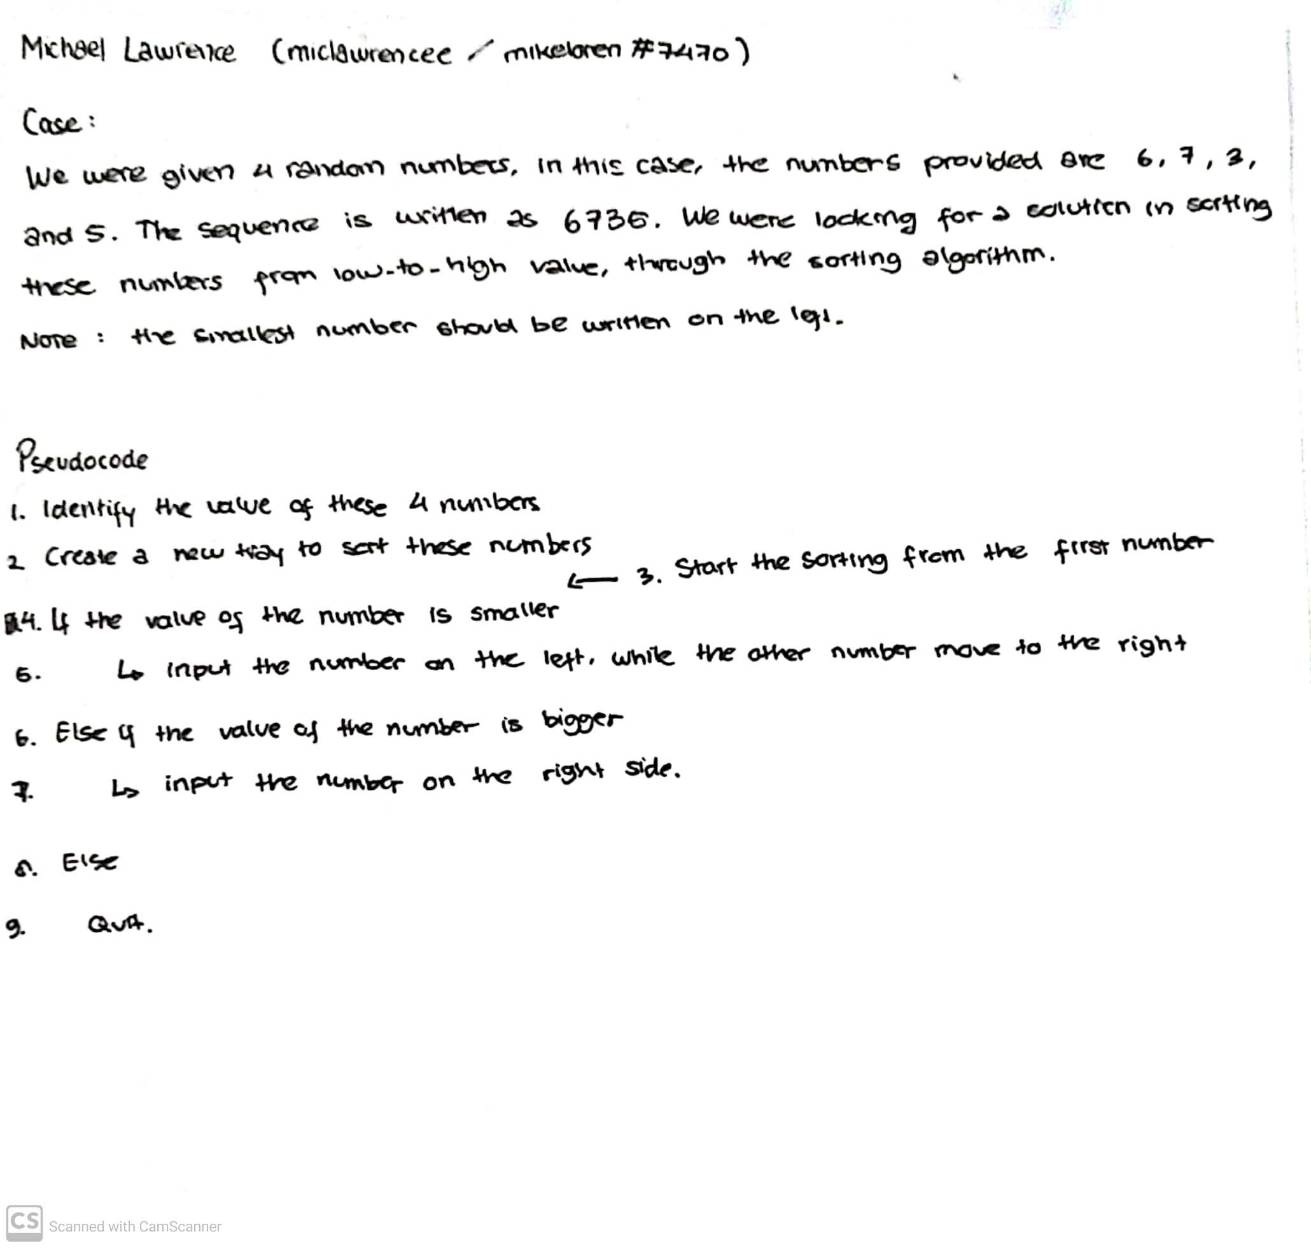 Michael Lawrence (miclawrencee / mikeloren #7470)
Case:
We were given 4 random numbers, in this case, the numbers provided are 6, 7, 3,
and 5. The sequence is written as 6735. We were looking for a solution in sorting
these numbers from low-to-high value, through the sorting algorithm.
NOTE : the smallest number should be written on the left.
Pseudocode
1. Identify the value of these 4 numbers
2 Create a new way to sort these numbers
← 3. Start the sorting from the first number
4. If the value of the number is smaller
5. ↳ input the number on the left, while the other number move to the right
6. Else if the value of the number is bigger
7. ↳ input the number on the right side.
8. Else
9. Quit.
CS Scanned with CamScanner